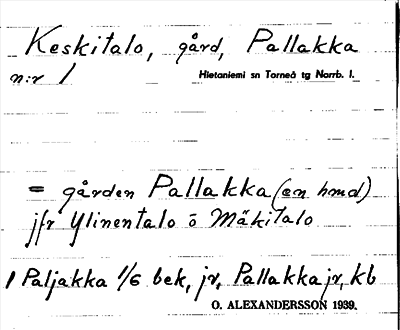 Keskitalo, gård, Pallakka
n:r 1 Hietaniemi sn Torneå tg Norrb. l.
= gården Pallakka (en hmd)
jfr Ylinentalo o Mäkitalo
1 Paljakka 1/6 bek, jr, Pallakka jr, kb
O. ALEXANDERSSON 1939.